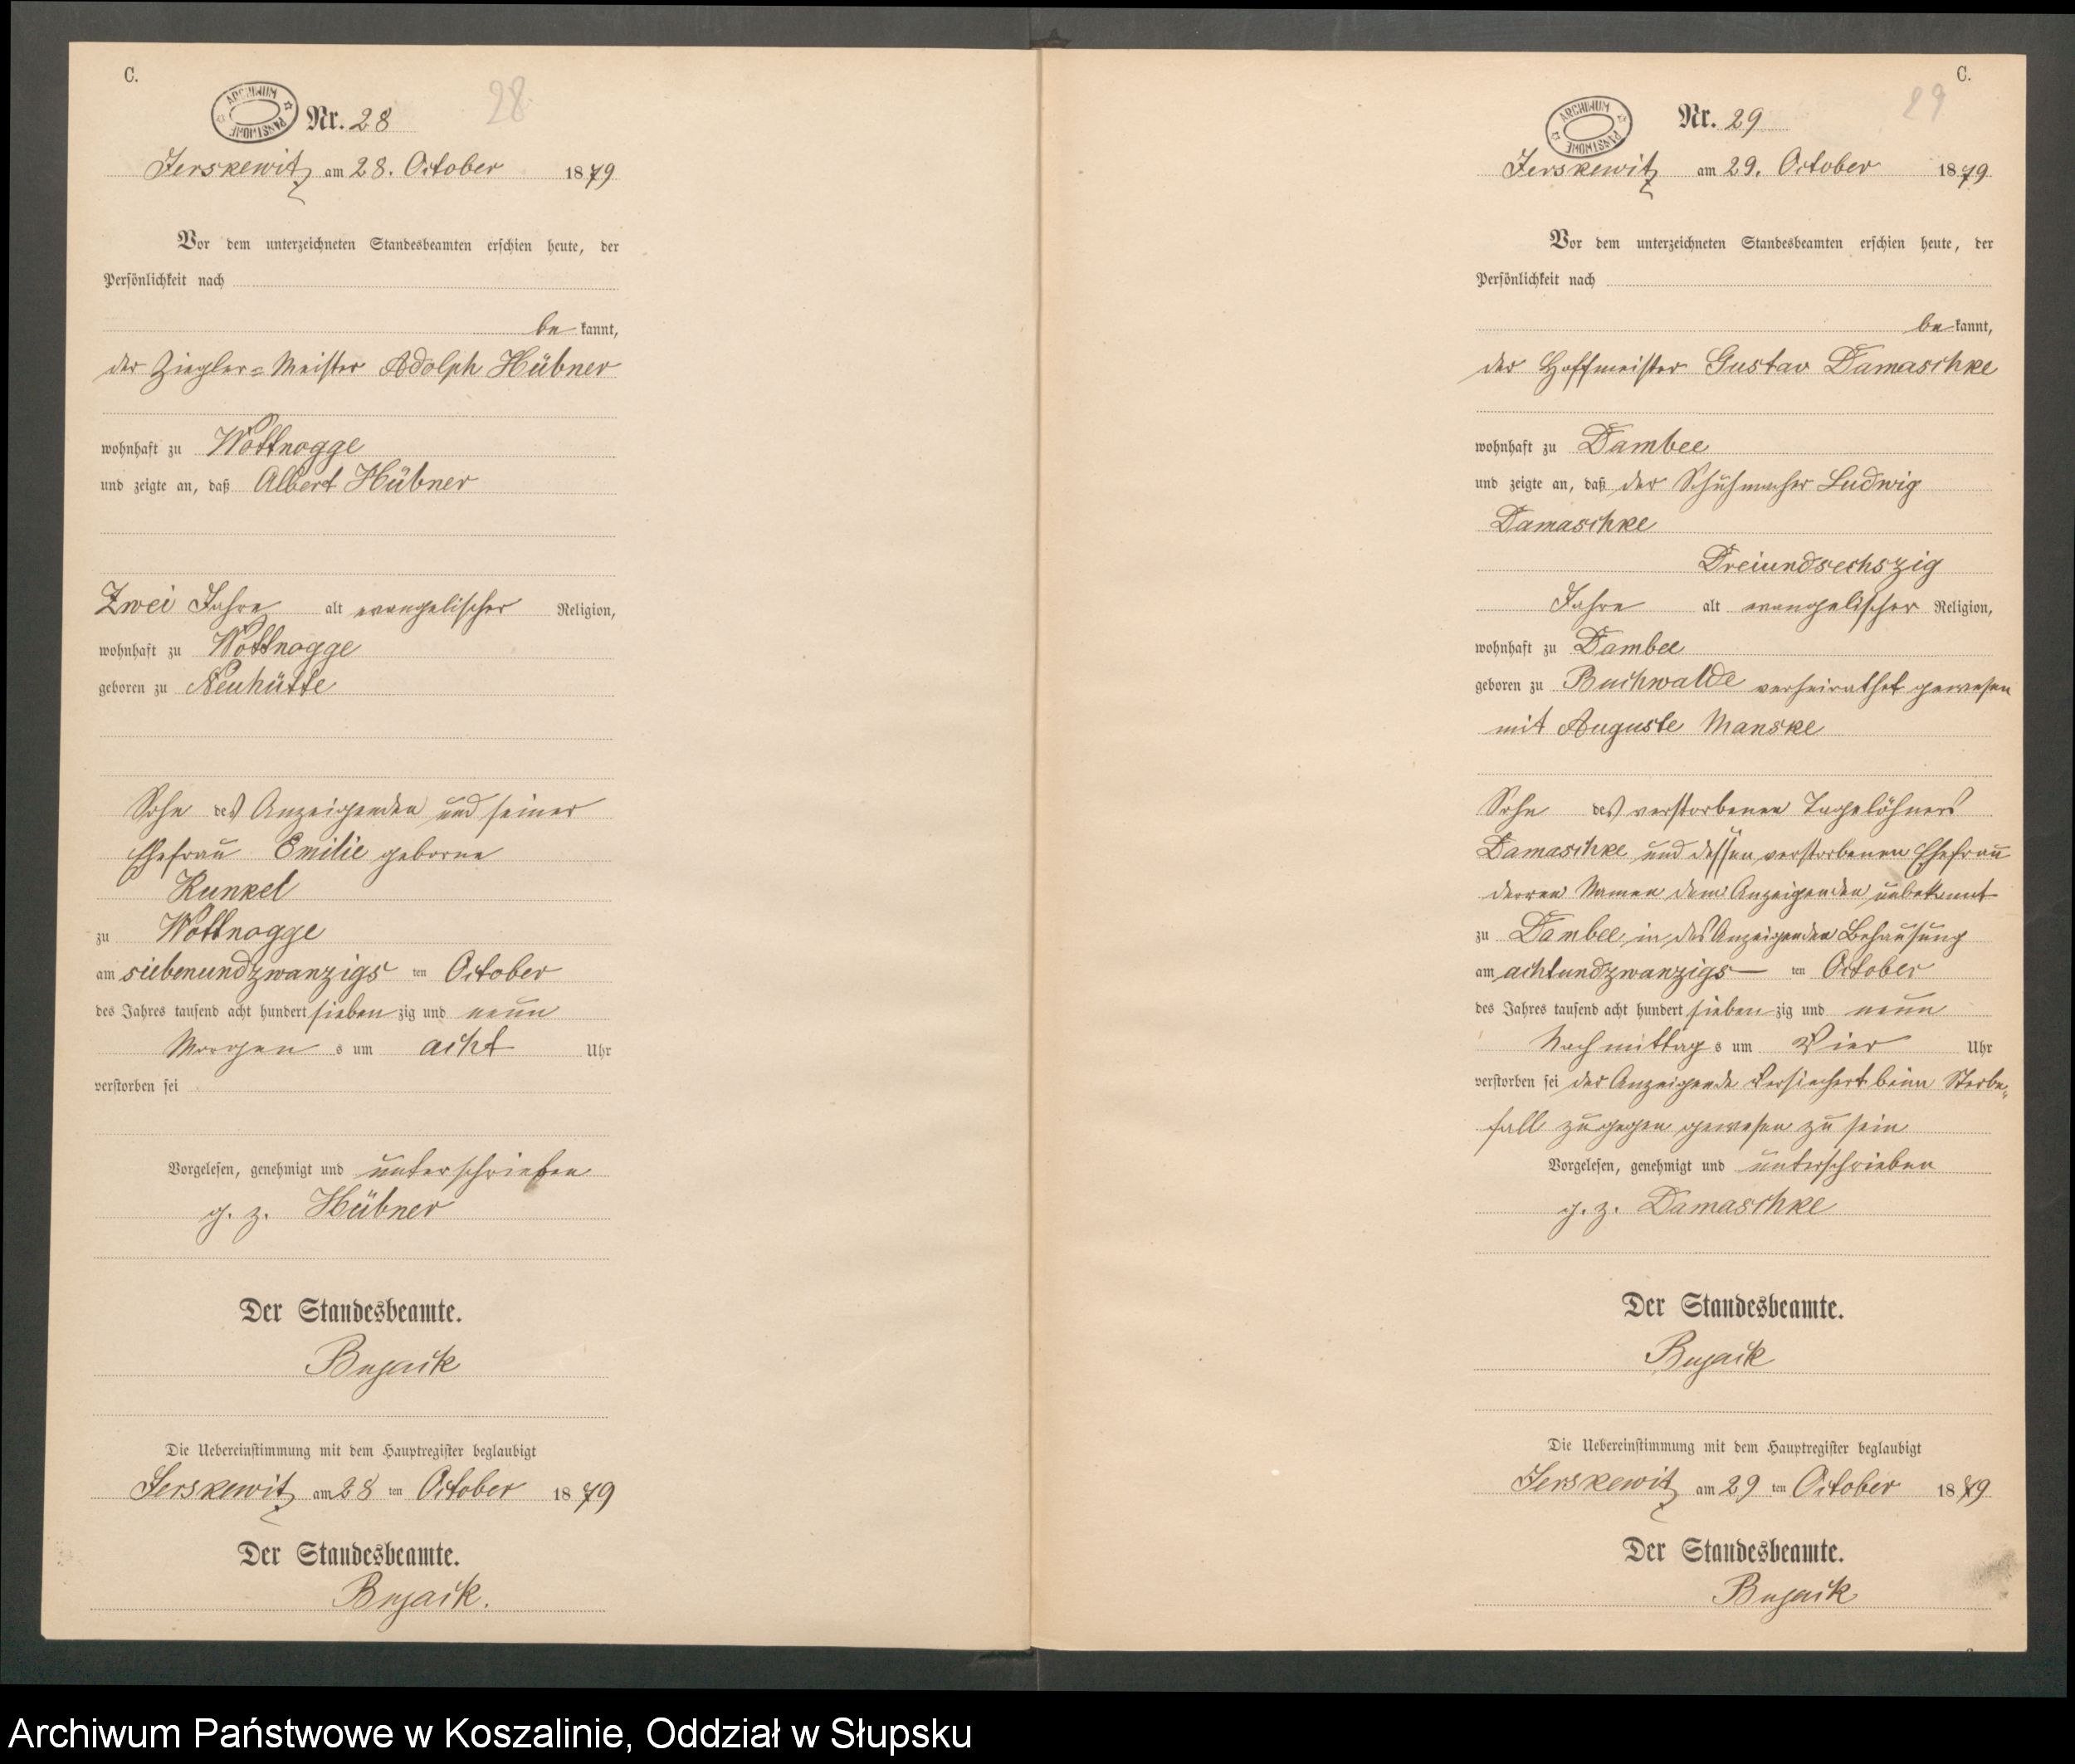 C.
ARCHIWUM PAŃSTWOWE
Nr. 28
28
Jerskewitz am 28. October 1879
Vor dem unterzeichneten Standesbeamten erschien heute, der
Persönlichkeit nach
be kannt,
der Ziegler=Meister Adolph Hübner
wohnhaft zu Wottnogge
und zeigte an, daß Albert Hübner
Zwei Jahre alt evangelischer Religion,
wohnhaft zu Wottnogge
geboren zu Neuhütte
Sohn des Anzeigenden und seiner
Ehefrau Emilie geborne
Kunkel
zu Wottnogge
am siebenundzwanzigs ten October
des Jahres tausend acht hundert sieben zig und neun
Morgen s um acht Uhr
verstorben sei
Vorgelesen, genehmigt und unterschrieben
g. z. Hübner
Der Standesbeamte.
Bujack
Die Uebereinstimmung mit dem Hauptregister beglaubigt
Jerskewitz am 28 ten October 1879
Der Standesbeamte.
Bujack.
C.
ARCHIWUM PAŃSTWOWE
Nr. 29
29
Jerskewitz am 29. October 1879
Vor dem unterzeichneten Standesbeamten erschien heute, der
Persönlichkeit nach
be kannt,
der Hoffmeister Gustav Damaschke
wohnhaft zu Dambee
und zeigte an, daß der Schuhmacher Ludwig
Damaschke
Dreiundsechszig
Jahre alt evangelischer Religion,
wohnhaft zu Dambee
geboren zu Buchwalde verheirathet gewesen
mit Auguste Manske
Sohn des verstorbenen Tagelöhners
Damaschke und dessen verstorbenen Ehefrau
derren Namen dem Anzeigenden unbekannt
zu Dambee, in des Anzeigenden Behausung
am achtundzwanzigs ten October
des Jahres tausend acht hundert sieben zig und neun
Nachmittag s um Vier Uhr
verstorben sei der Anzeigende versichert beim Sterbe=
fall zugegen gewesen zu sein
Vorgelesen, genehmigt und unterschrieben
g. z. Damaschke
Der Standesbeamte.
Bujack
Die Uebereinstimmung mit dem Hauptregister beglaubigt
Jerskewitz am 29 ten October 1879
Der Standesbeamte.
Bujack
Archiwum Państwowe w Koszalinie, Oddział w Słupsku